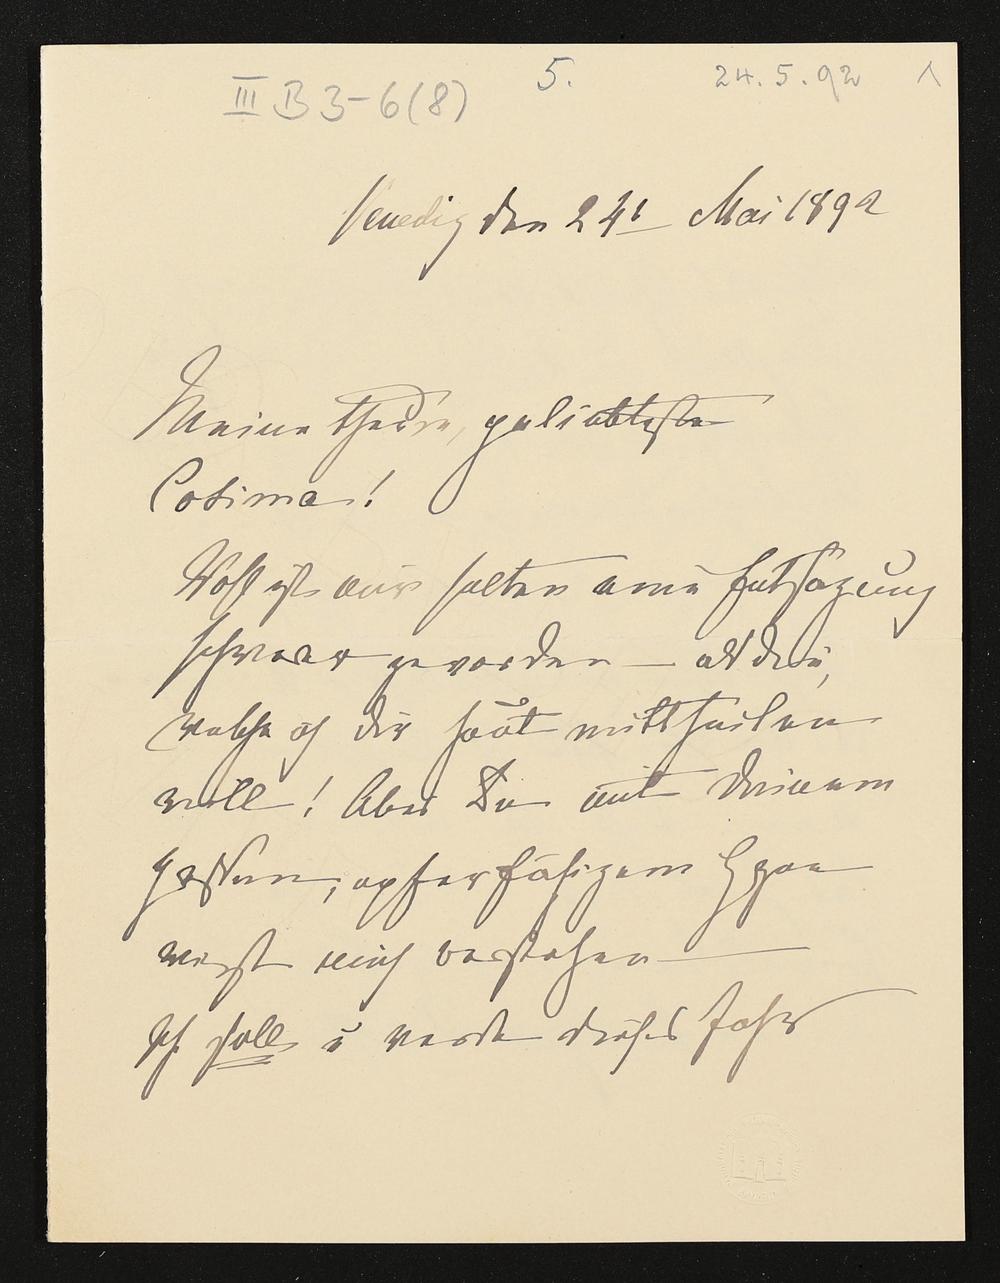 III B 3-6(8)
5.
24.5.92
Venedig den 24t Mai 1892
Meine theure, geliebteste
Cosima!
Wohl ist mir selten eine Entsagung
schwerer geworden — als die,
welche ich dir heut mittheilen
will! Aber Du mit Deinem
großem, opferfähigem
wirst mich verstehen —
Ich soll u werde dieses Jahr